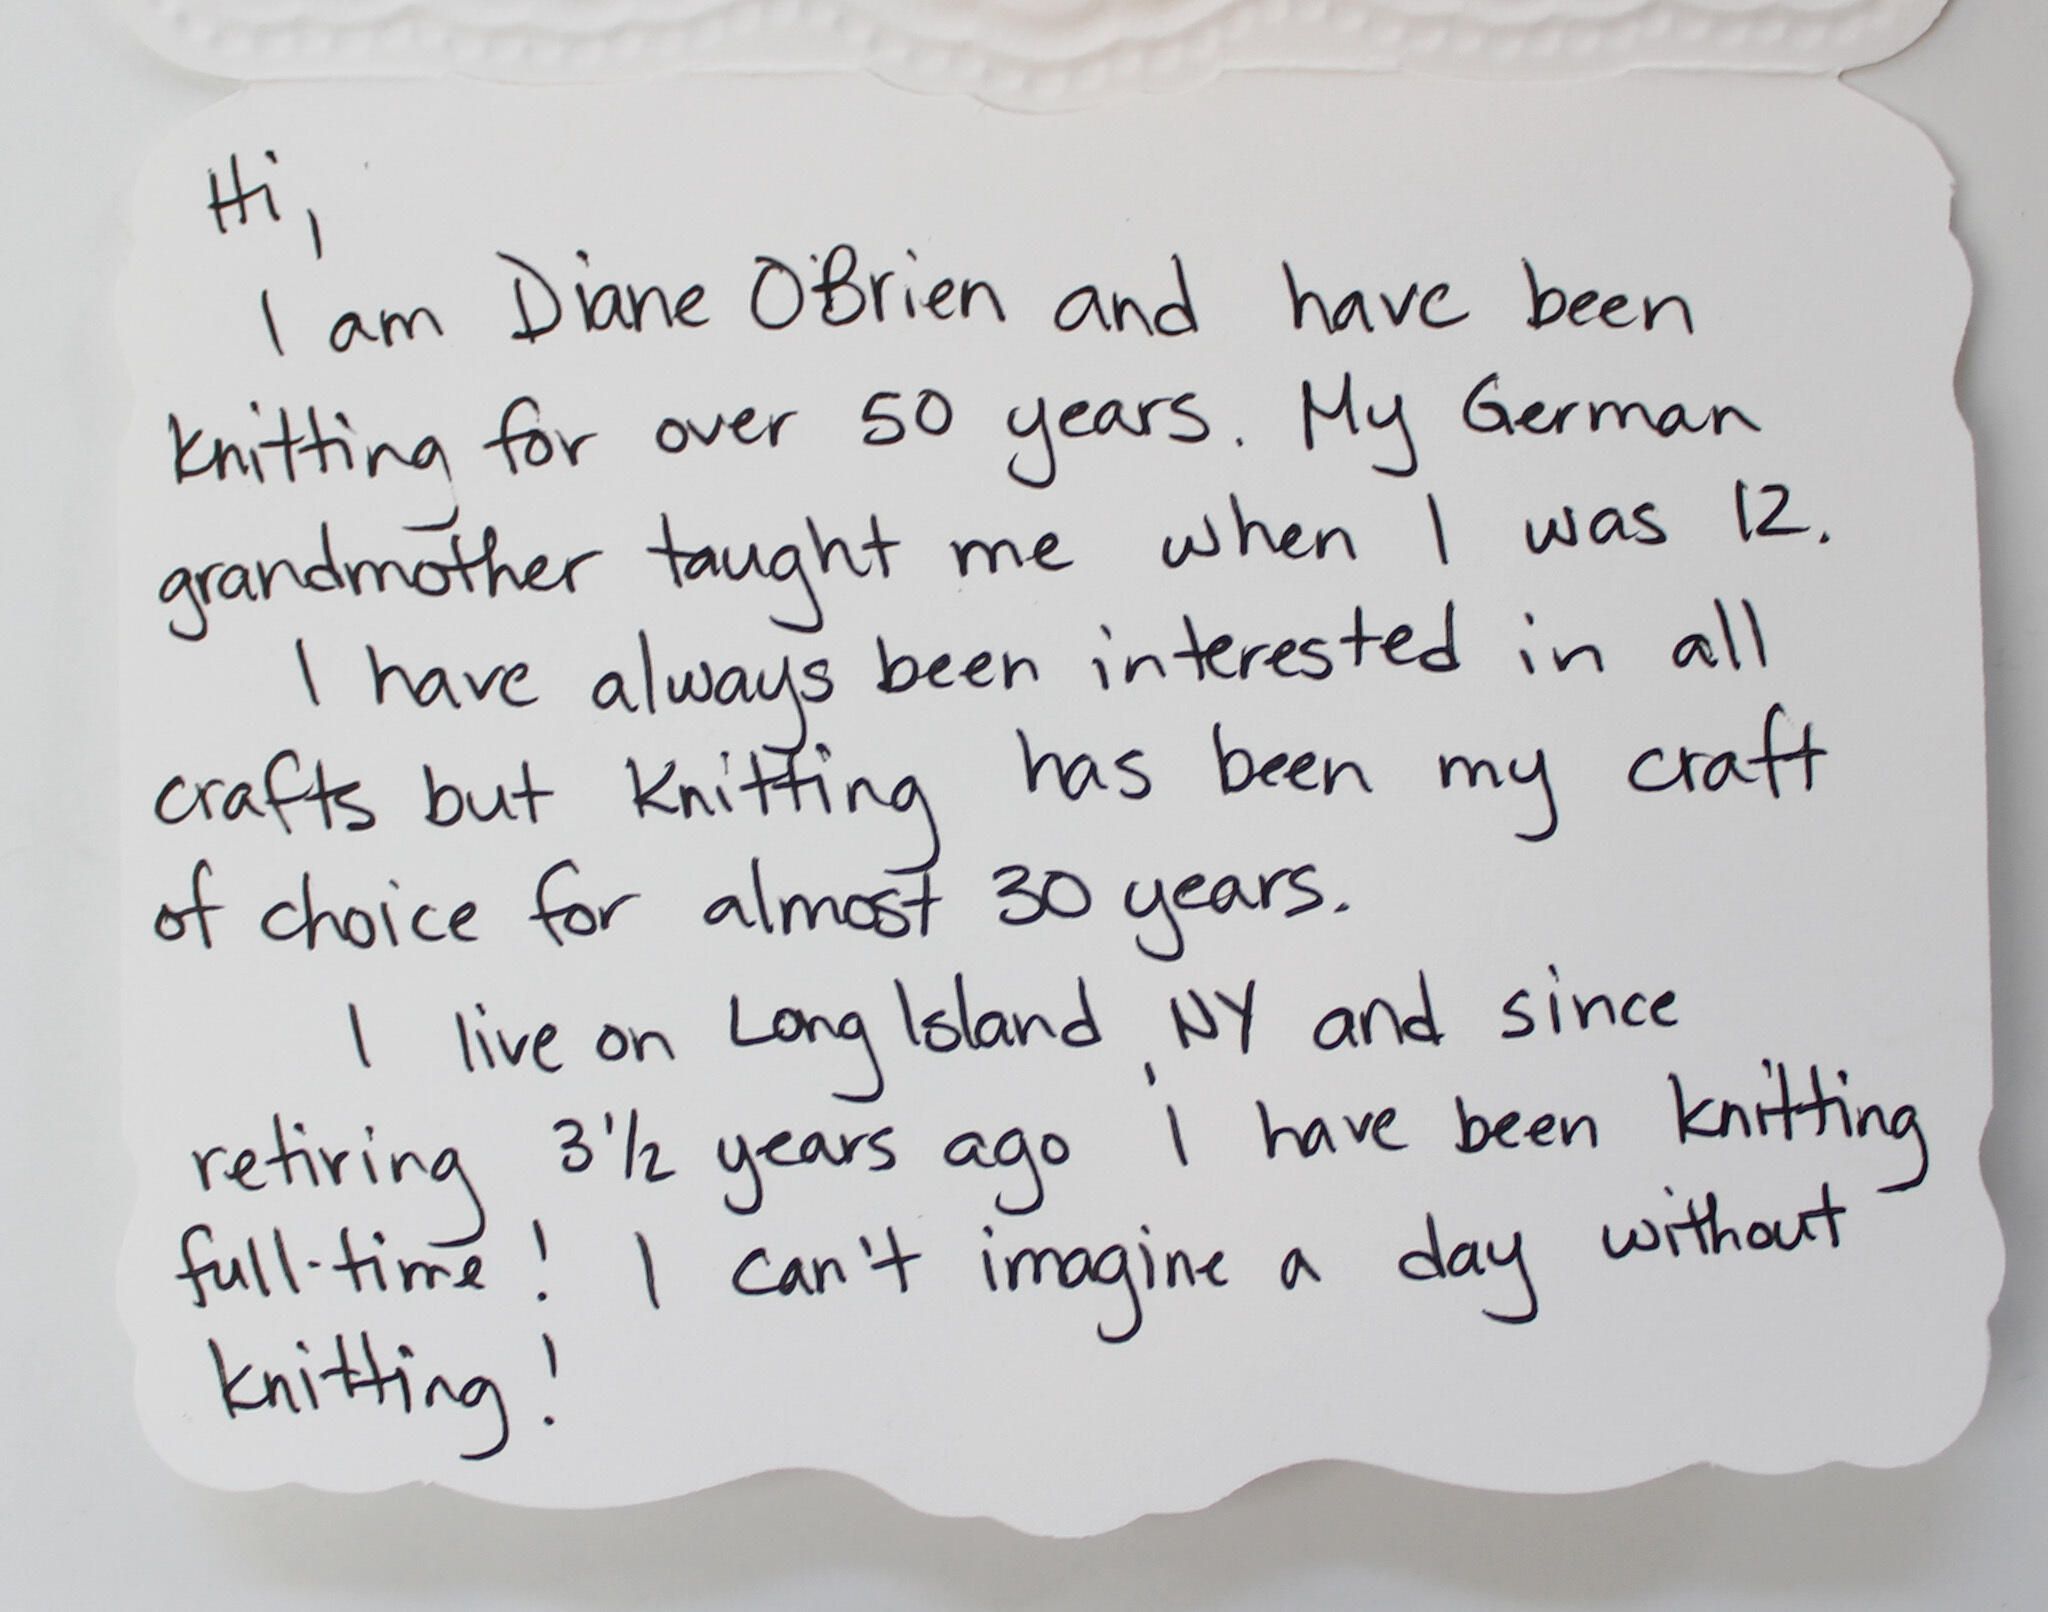 Hi,
I am Diane O'Brien and have been
knitting for over 50 years. My German
grandmother taught me when I was 12.
I have always been interested in all
crafts but knitting has been my craft
of choice for almost 30 years.
I live on Long Island, NY and since
retiring 3 1/2 years ago i have been knitting
full-time! I can't imagine a day without
knitting!